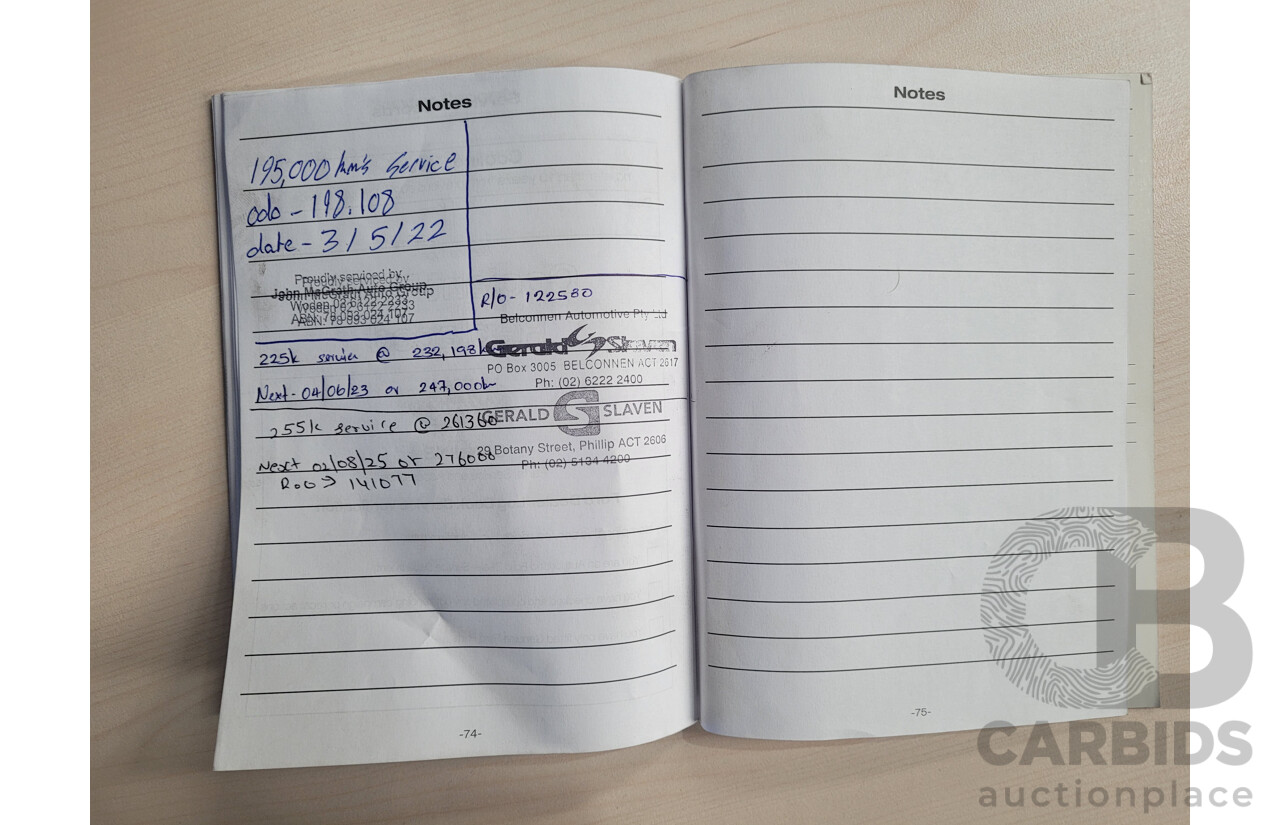 Notes
195,000 km's Service
odo - 198,108
date - 3/5/22
Proudly serviced by
John McGrath Auto Group
Woden 02 6222 2233
ABN: 76 093 024 107
R/O - 122580
Belconnen Automotive Pty Ltd
Gerald Slaven
PO Box 3005 BELCONNEN ACT 2617
Ph: (02) 6222 2400
225k service @ 232,198k
Next - 04/06/23 or 247,000km
255k service @ 261360
GERALD S SLAVEN
29 Botany Street, Phillip ACT 2606
Ph: (02) 5134 4200
Next 02/08/25 or 276000
Roo → 141077
-74-
Notes
-75-
CB
CARBIDS
auctionplace